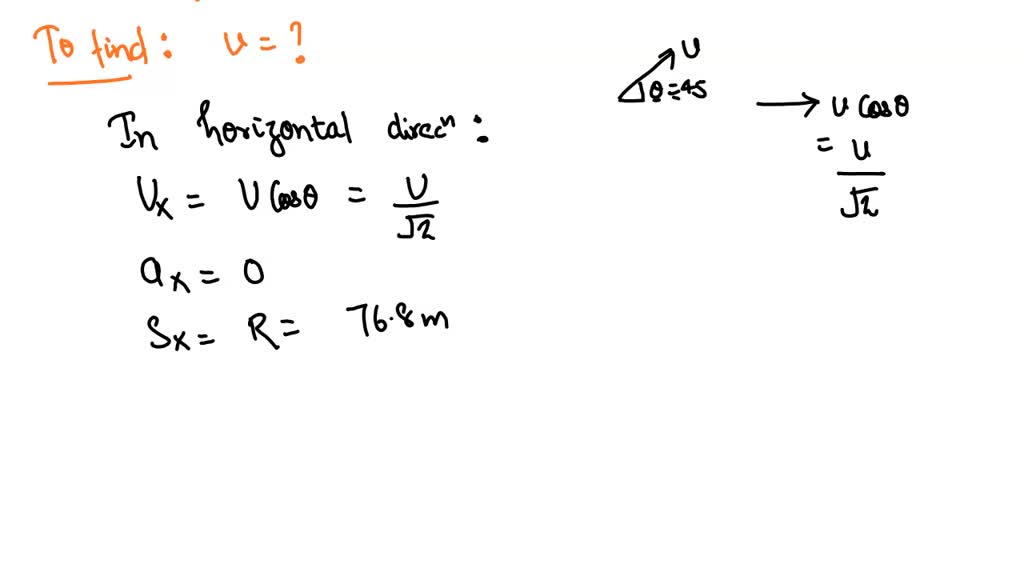 To find: u = ?
In horizontal direcⁿ:
Ux = U Cosθ = U/√2
ax = 0
Sx = R = 76.8m
U
θ=45
→ u Cosθ
= u/√2